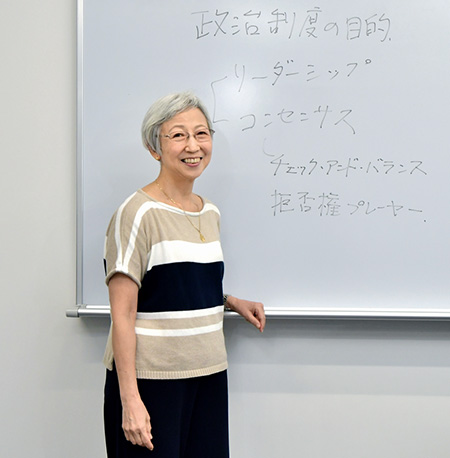 政治制度の目的.
リーダーシップ
コンセンサス
チェック・アンド・バランス
拒否権プレーヤー.